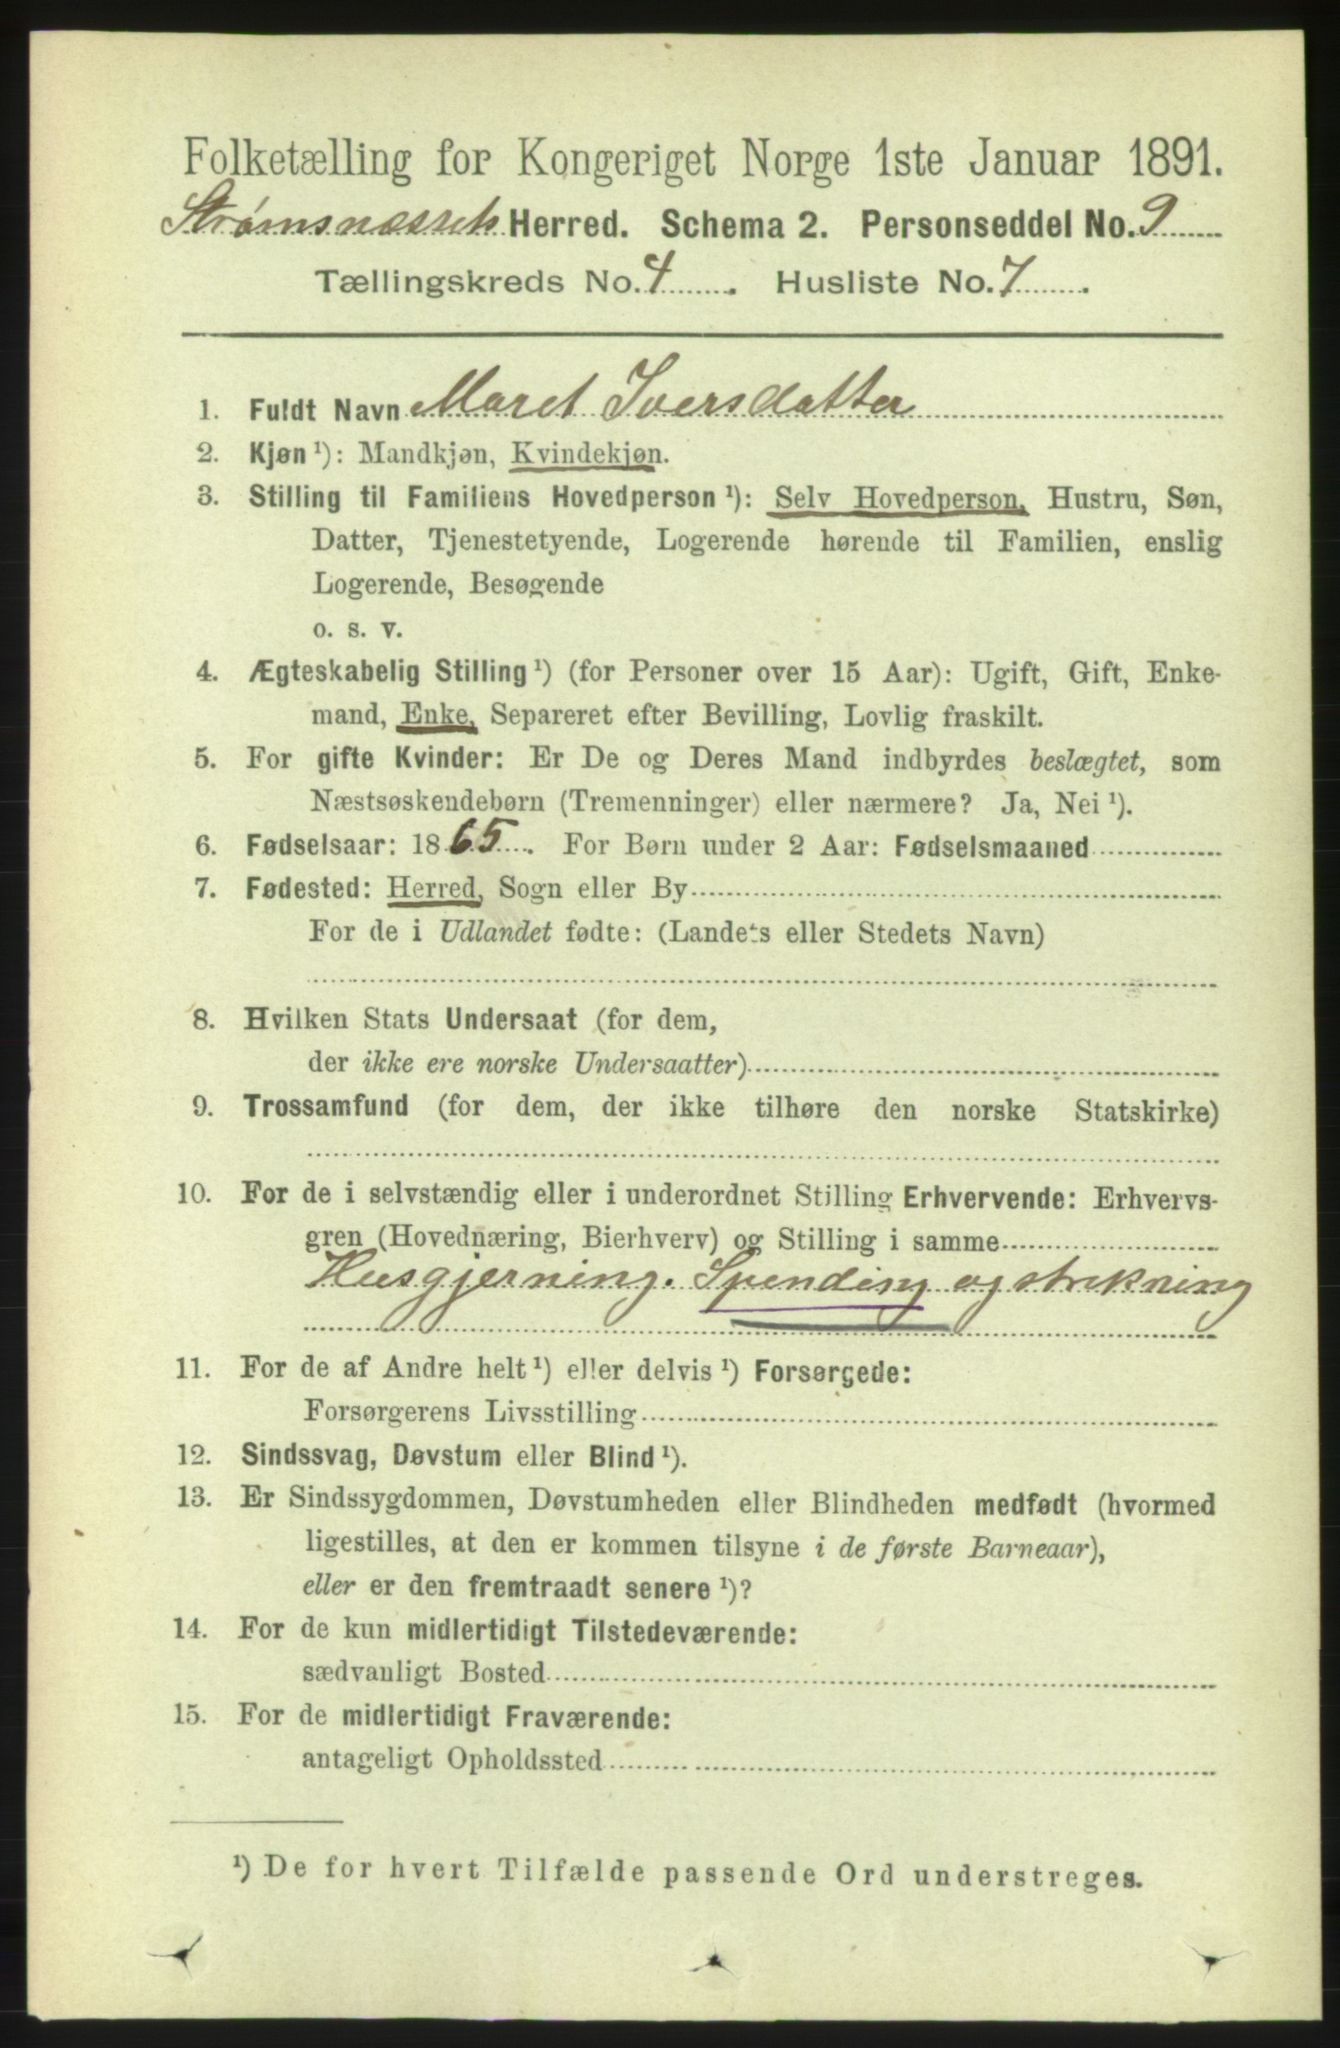 Folketælling for Kongeriget Norge 1ste Januar 1891.
Strømsnæssets Herred. Schema 2. Personseddel No. 9
Tællingskreds No. 4. Husliste No. 7.
1. Fuldt Navn Maret Iversdatter
2. Kjøn ¹): Mandkjøn, Kvindekjøn.
3. Stilling til Familiens Hovedperson ¹): Selv Hovedperson, Hustru, Søn,
Datter, Tjenestetyende, Logerende hørende til Familien, enslig
Logerende, Besøgende
o. s. v.
4. Ægteskabelig Stilling ¹) (for Personer over 15 Aar): Ugift, Gift, Enke-
mand, Enke, Separeret efter Bevilling, Lovlig fraskilt.
5. For gifte Kvinder: Er De og Deres Mand indbyrdes beslægtet, som
Næstsøskendebørn (Tremenninger) eller nærmere? Ja, Nei ¹).
6. Fødselsaar: 1865. For Børn under 2 Aar: Fødselsmaaned
7. Fødested: Herred, Sogn eller By
For de i Udlandet fødte: (Landets eller Stedets Navn)
8. Hvilken Stats Undersaat (for dem,
der ikke ere norske Undersaatter)
9. Trossamfund (for dem, der ikke tilhøre den norske Statskirke)
10. For de i selvstændig eller i underordnet Stilling Erhvervende: Erhvervs-
gren (Hovednæring, Bierhverv) og Stilling i samme
Husgjerning. Spinding og strikning
11. For de af Andre helt ¹) eller delvis ¹) Forsørgede:
Forsørgerens Livsstilling
12. Sindssvag, Døvstum eller Blind ¹).
13. Er Sindssygdommen, Døvstumheden eller Blindheden medfødt (hvormed
ligestilles, at den er kommen tilsyne i de første Barneaar),
eller er den fremtraadt senere ¹)?
14. For de kun midlertidigt Tilstedeværende:
sædvanligt Bosted
15. For de midlertidigt Fraværende:
antageligt Opholdssted
¹) De for hvert Tilfælde passende Ord understreges.